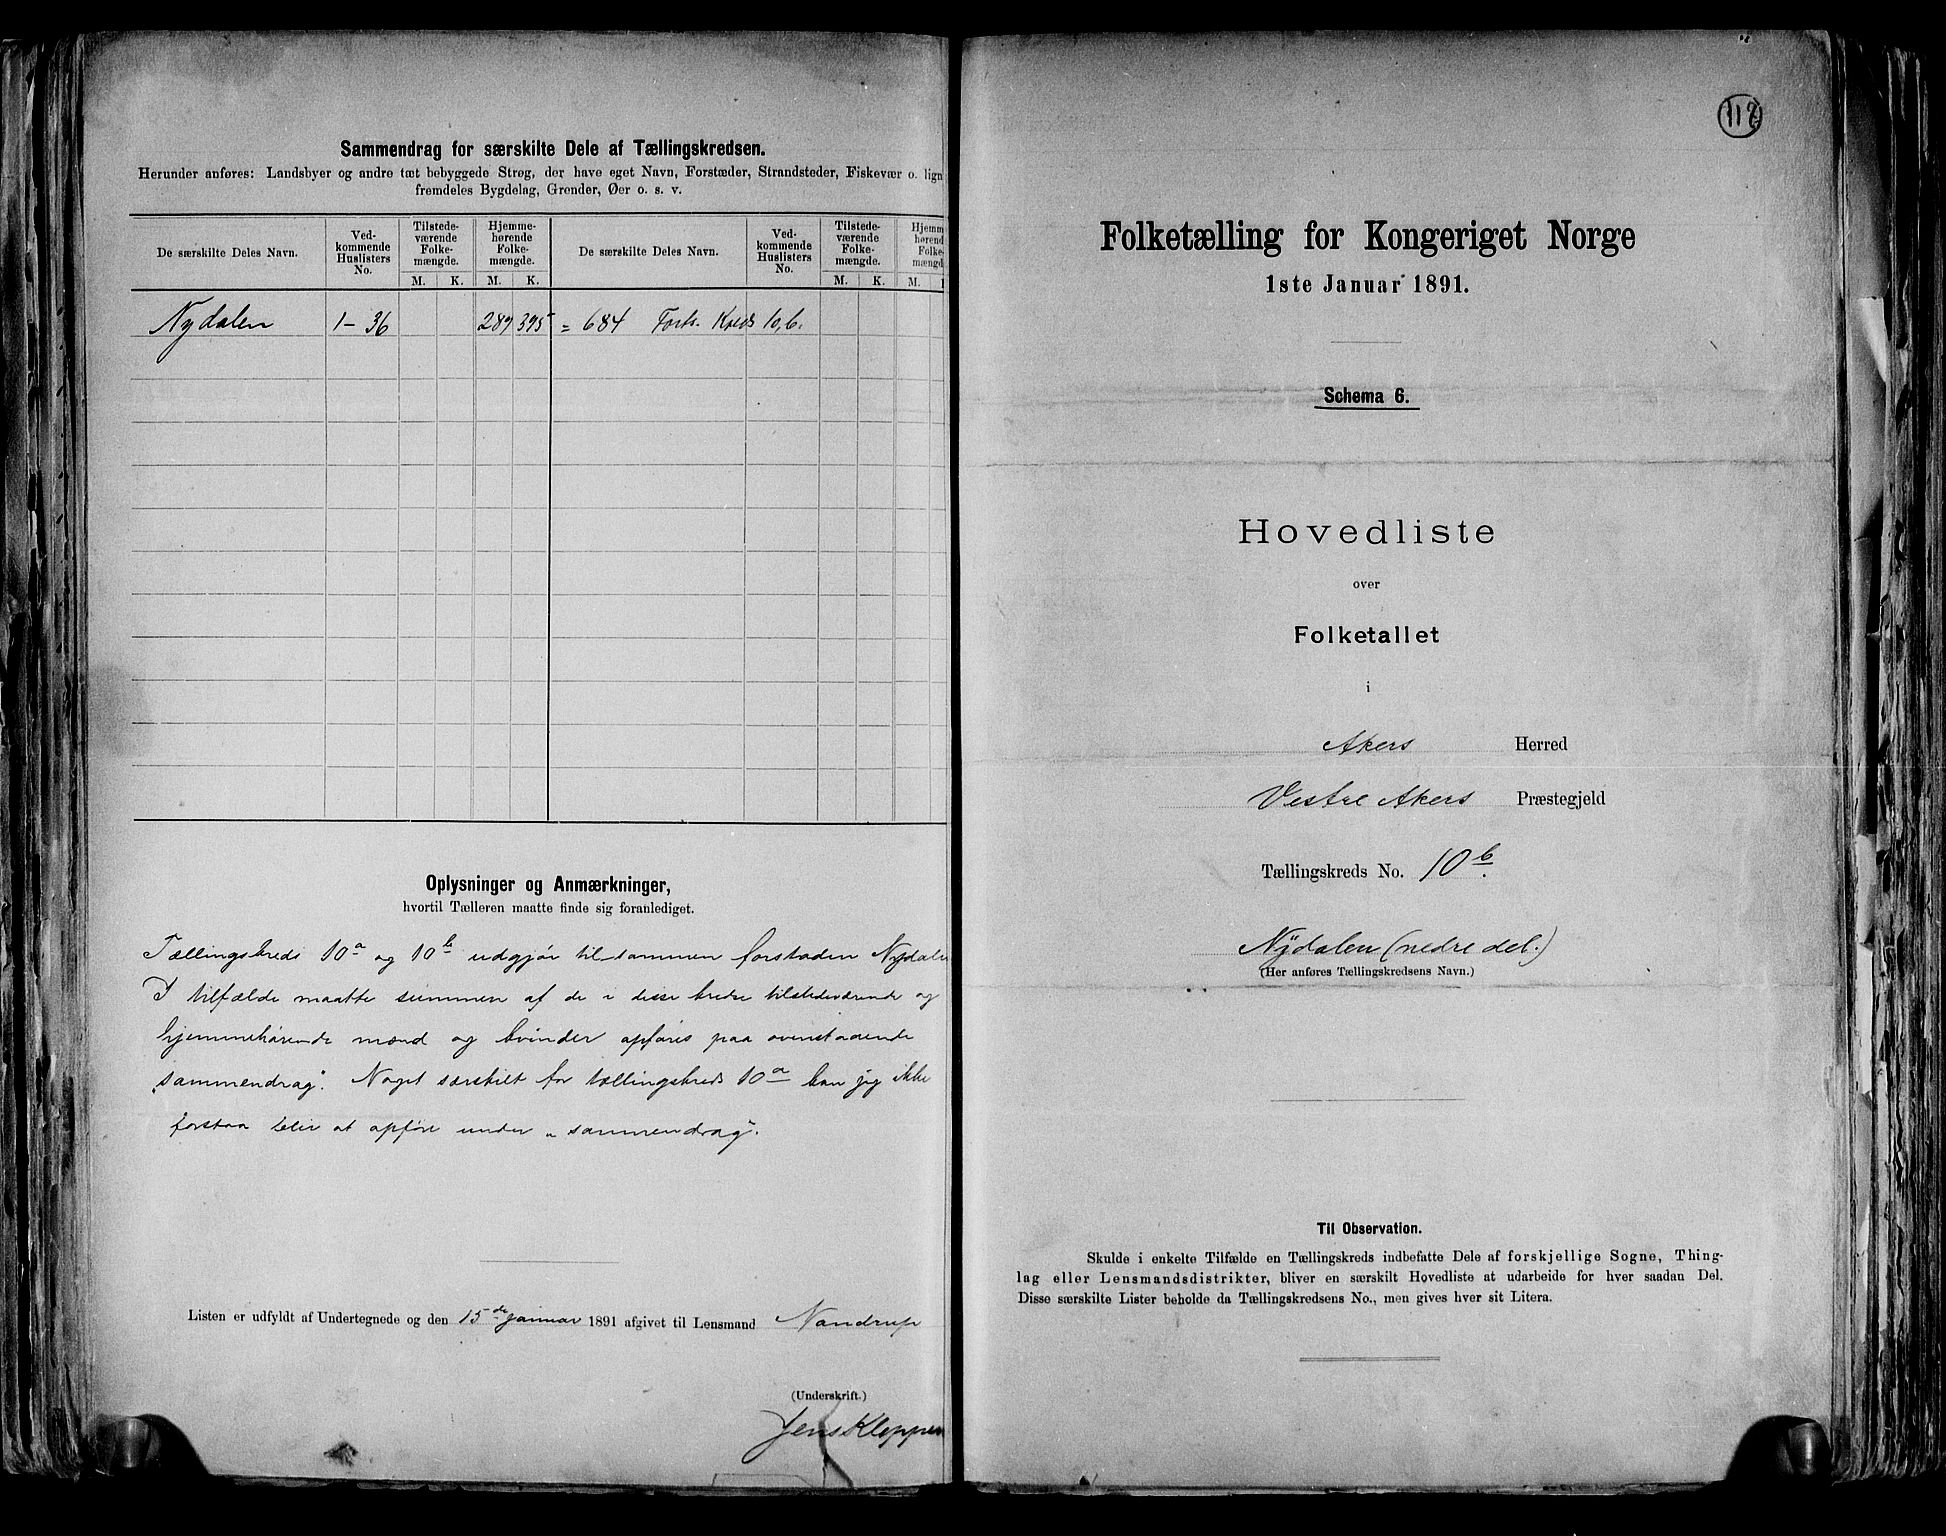 Sammendrag for særskilte Dele af Tællingskredsen.
Herunder anføres: Landsbyer og andre tæt bebyggede Strøg, der have eget Navn, Forstæder, Strandsteder, Fiskevær o. lign
fremdeles Bygdelag, Grender, Øer o. s. v.
De særskilte Deles Navn.
Ved-
kommende
Huslisters
No.
Tilstede-
værende
Folke-
mængde.
M. K.
Hjemme-
hørende
Folke-
mængde.
M. K.
De særskilte Deles Navn.
Ved-
kommende
Huslisters
No.
Tilstede-
værende
Folke-
mængde.
M. K.
Hjemm
hørend
Folke-
mængd
M.
Nydalen 1-36 289 395 = 684 Forts. Kreds 10,b.
Oplysninger og Anmærkninger,
hvortil Tælleren maatte finde sig foranlediget.
Tællingskreds 10a og 10b udgjør tilsammen forstaden Nydale
I tilfælde maatte summen af de i disse kredse tilstedeværende og
hjemmehørende mænd og kvinder opføres paa ovenstaaende
„sammendrag". Noget særskilt for tællingskreds 10a kan jeg ikke
forstaa blir at opføre under „sammendrag".
Listen er udfyldt af Undertegnede og den 15de januar 1891 afgivet til Lensmand Nandrup
(Underskrift.)
Jens Kloppen
118
Folketælling for Kongeriget Norge
1ste Januar 1891.
Schema 6.
Hovedliste
over
Folketallet
i
Akers Herred
Vestre Akers Præstegjeld
Tællingskreds No. 10b.
Nydalen (nedre del.)
(Her anføres Tællingskredsens Navn.)
Til Observation.
Skulde i enkelte Tilfælde en Tællingskreds indbefatte Dele af forskjellige Sogne, Thing-
lag eller Lensmandsdistrikter, bliver en særskilt Hovedliste at udarbeide for hver saadan Del.
Disse særskilte Lister beholde da Tællingskredsens No., men gives hver sit Litera.